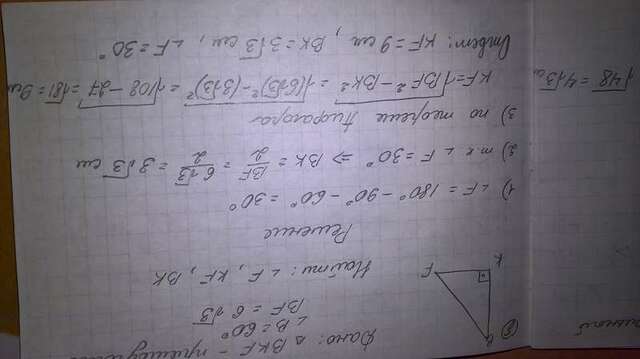 Дано: △ BKF –
∠B = 60°
BF = 6√3
Найти: ∠F, KF, BK
B
K
F
Решение
1) ∠F = 180° – 90° – 60° = 30°
2) т.к ∠F = 30° ⇒ BK = BF/2 = 6√3/2 = 3√3 см
3) по теореме Пифагора
KF = √BF² – BK² = √(6√3)² – (3√3)² = √108 – 27 = √81 = 9см
Ответ: KF = 9 см, BK = 3√3 см, ∠F = 30°
√48 = 4√3 см